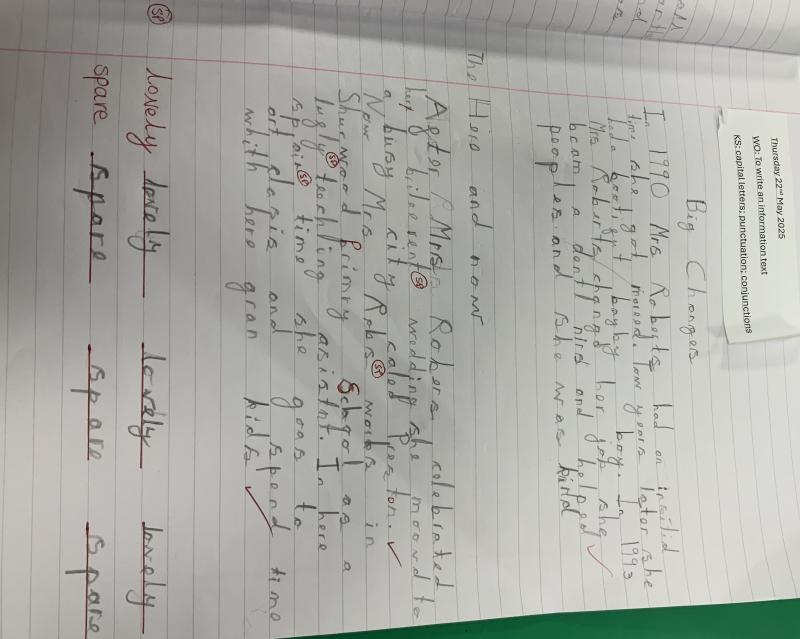 Thursday 22nd May 2025
WO: To write an information text
KS: capital letters; punctuation; conjunctions
Big Changes
In 1990 Mrs Roberts had an
time she got later she
had a bayby boy. In 1993
Mrs Roberts changd her job she
beam a dentl nirs and helped
peoples and she was kind
The Heio and now
After Mrs Robers celebrated
her wedding she moovd to
a busy city caled Preston.
Now Mrs Robs works in
Shurwood Primry School as a
lugly teaching asistnt. In here
spair time she goas to
art clasis and spend time
whith here gran kids
sp lovely lovely lovely lovely
spare spare spare spare